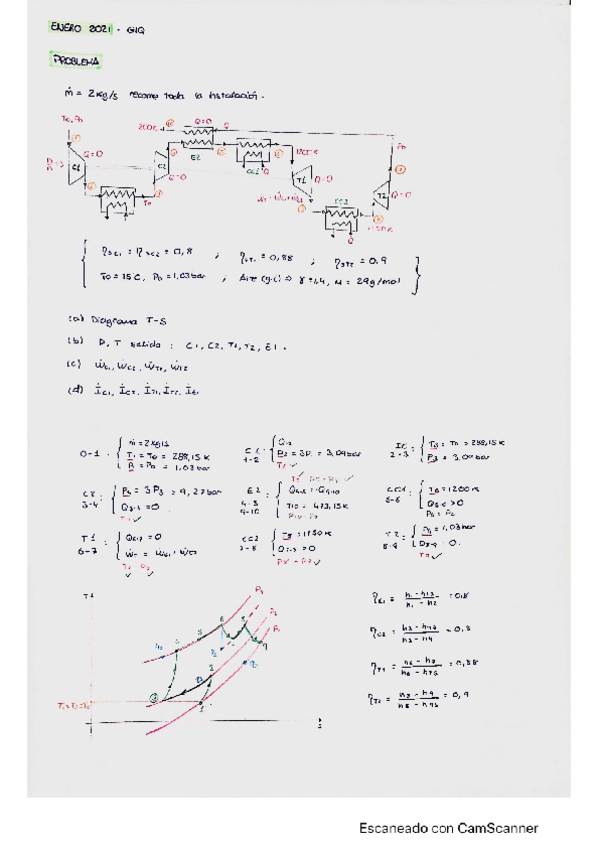 ENERO 2021 - GIIQ
PROBLEMA
ṁ = 2 kg/s recorre toda la instalación.
To, Po
Q=0
C1
Q=0
200ºC
E2
Q=0
C2
Q=0
To
CC1
Q
1200K
T1
Q=0
CC2
Q
1150K
T2
Q=0
Po
ηSC1 = ηSC2 = 0,8 ; ηST1 = 0,88 ; ηST2 = 0,9
To = 15C, Po = 1,03 bar ; Aire (g.i) ⇒ γ = 1,4, M = 29 g/mol
(a) Diagrama T-S
(b) P, T salida : C1, C2, T1, T2, E1.
(c) ẆC1, ẆC2, ẆT1, ẆT2
(d) İC1, İC2, İT1, İT2, İE1
0-1 : ṁ = 2 kg/s
T1 = To = 288,15 K
P1 = Po = 1,03 bar
C1 1-2 : P2 = 3P1 = 3,09 bar
T2 ✓
2-3 : T3 = To = 288,15 K
P3 = 3,09 bar
C2 3-4 : P4 = 3P3 = 9,27 bar
Q3-4 = 0
T4 ✓
E2 4-5 9-10 : Q4-5 = -Q9-10
T10 = 473,15 K
CC1 5-6 : T6 = 1200 K
Q5-6 > 0
T1 6-7 : Q6-7 = 0
CC2 7-8 : T8 = 1150 K
Q7-8 > 0
P8 = P7 ✓
T2 8-9 : P9 = 1,03 bar
Q8-9 = 0
T9 ✓
T
S
T1=T3=To
ηC1 = h1 - h2s / h1 - h2 = 0,8
ηC2 = h3 - h4s / h3 - h4 = 0,8
ηT1 = h6 - h7 / h6 - h7s = 0,88
ηT2 = h8 - h9 / h8 - h9s = 0,9
Escaneado con CamScanner